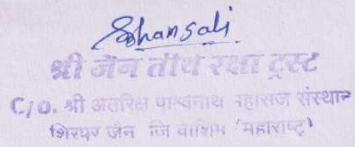 Bhansali
श्री जैन तीर्थ रक्षा ट्रस्ट
C/o. श्री अंतरिक्ष पार्श्वनाथ महाराज संस्थान
शिरपुर जैन जि वाशिम (महाराष्ट्र)